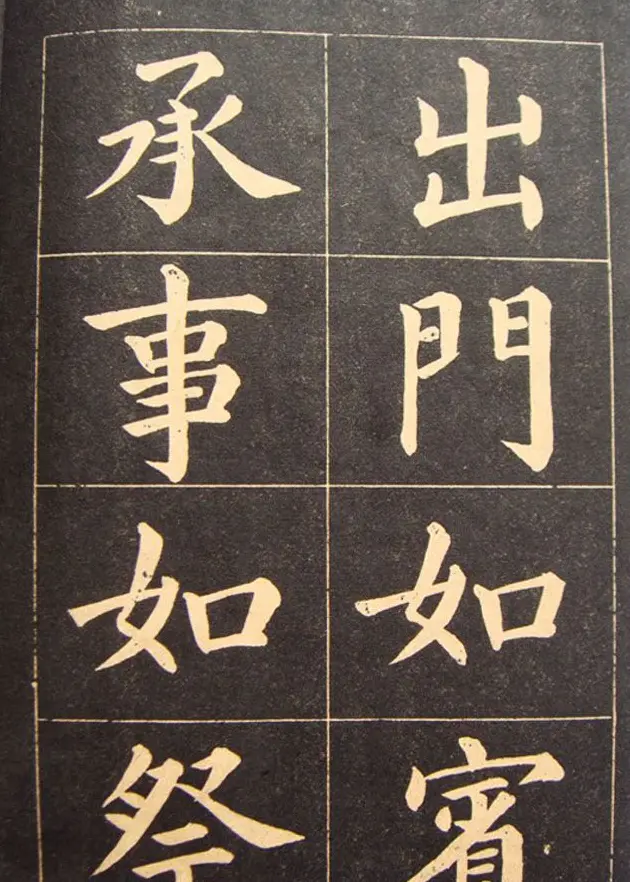 出門如賓
承事如祭